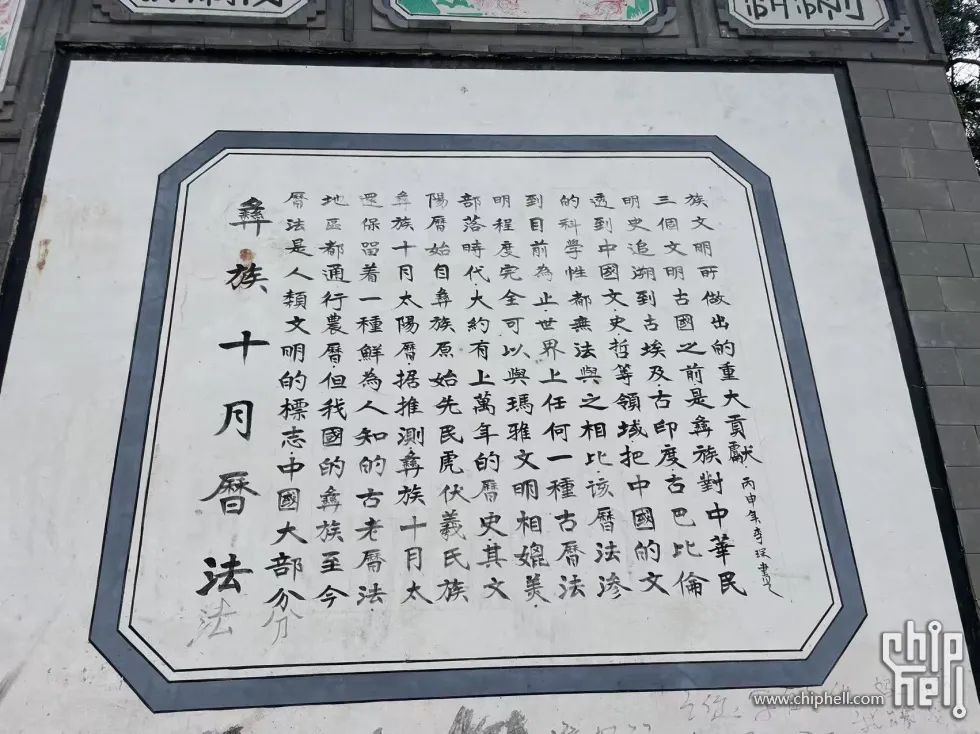 彝族十月曆法
曆法是人類文明的標志·中國大部分
地區都通行農曆·但我國的彝族至今
還保留着一種鮮為人知的古老曆法·
彝族十月太陽曆·据推測彝族十月太
陽曆始自彝族原始先民虎伏羲氏族
部落時代·大約有上萬年的曆史其文
明程度完全可以與瑪雅文明相媲美·
到目前為止·世界上任何一種古曆法
的科學性都無法與之相比·該曆法滲
透到中國文·史·哲等領域·把中國的文
明史追溯到古埃及·古印度古巴比倫
三個文明古國之前是彝族對中華民
族文明所做出的重大貢獻·
丙申年李
法
分
chip
hell
www.chiphell.com